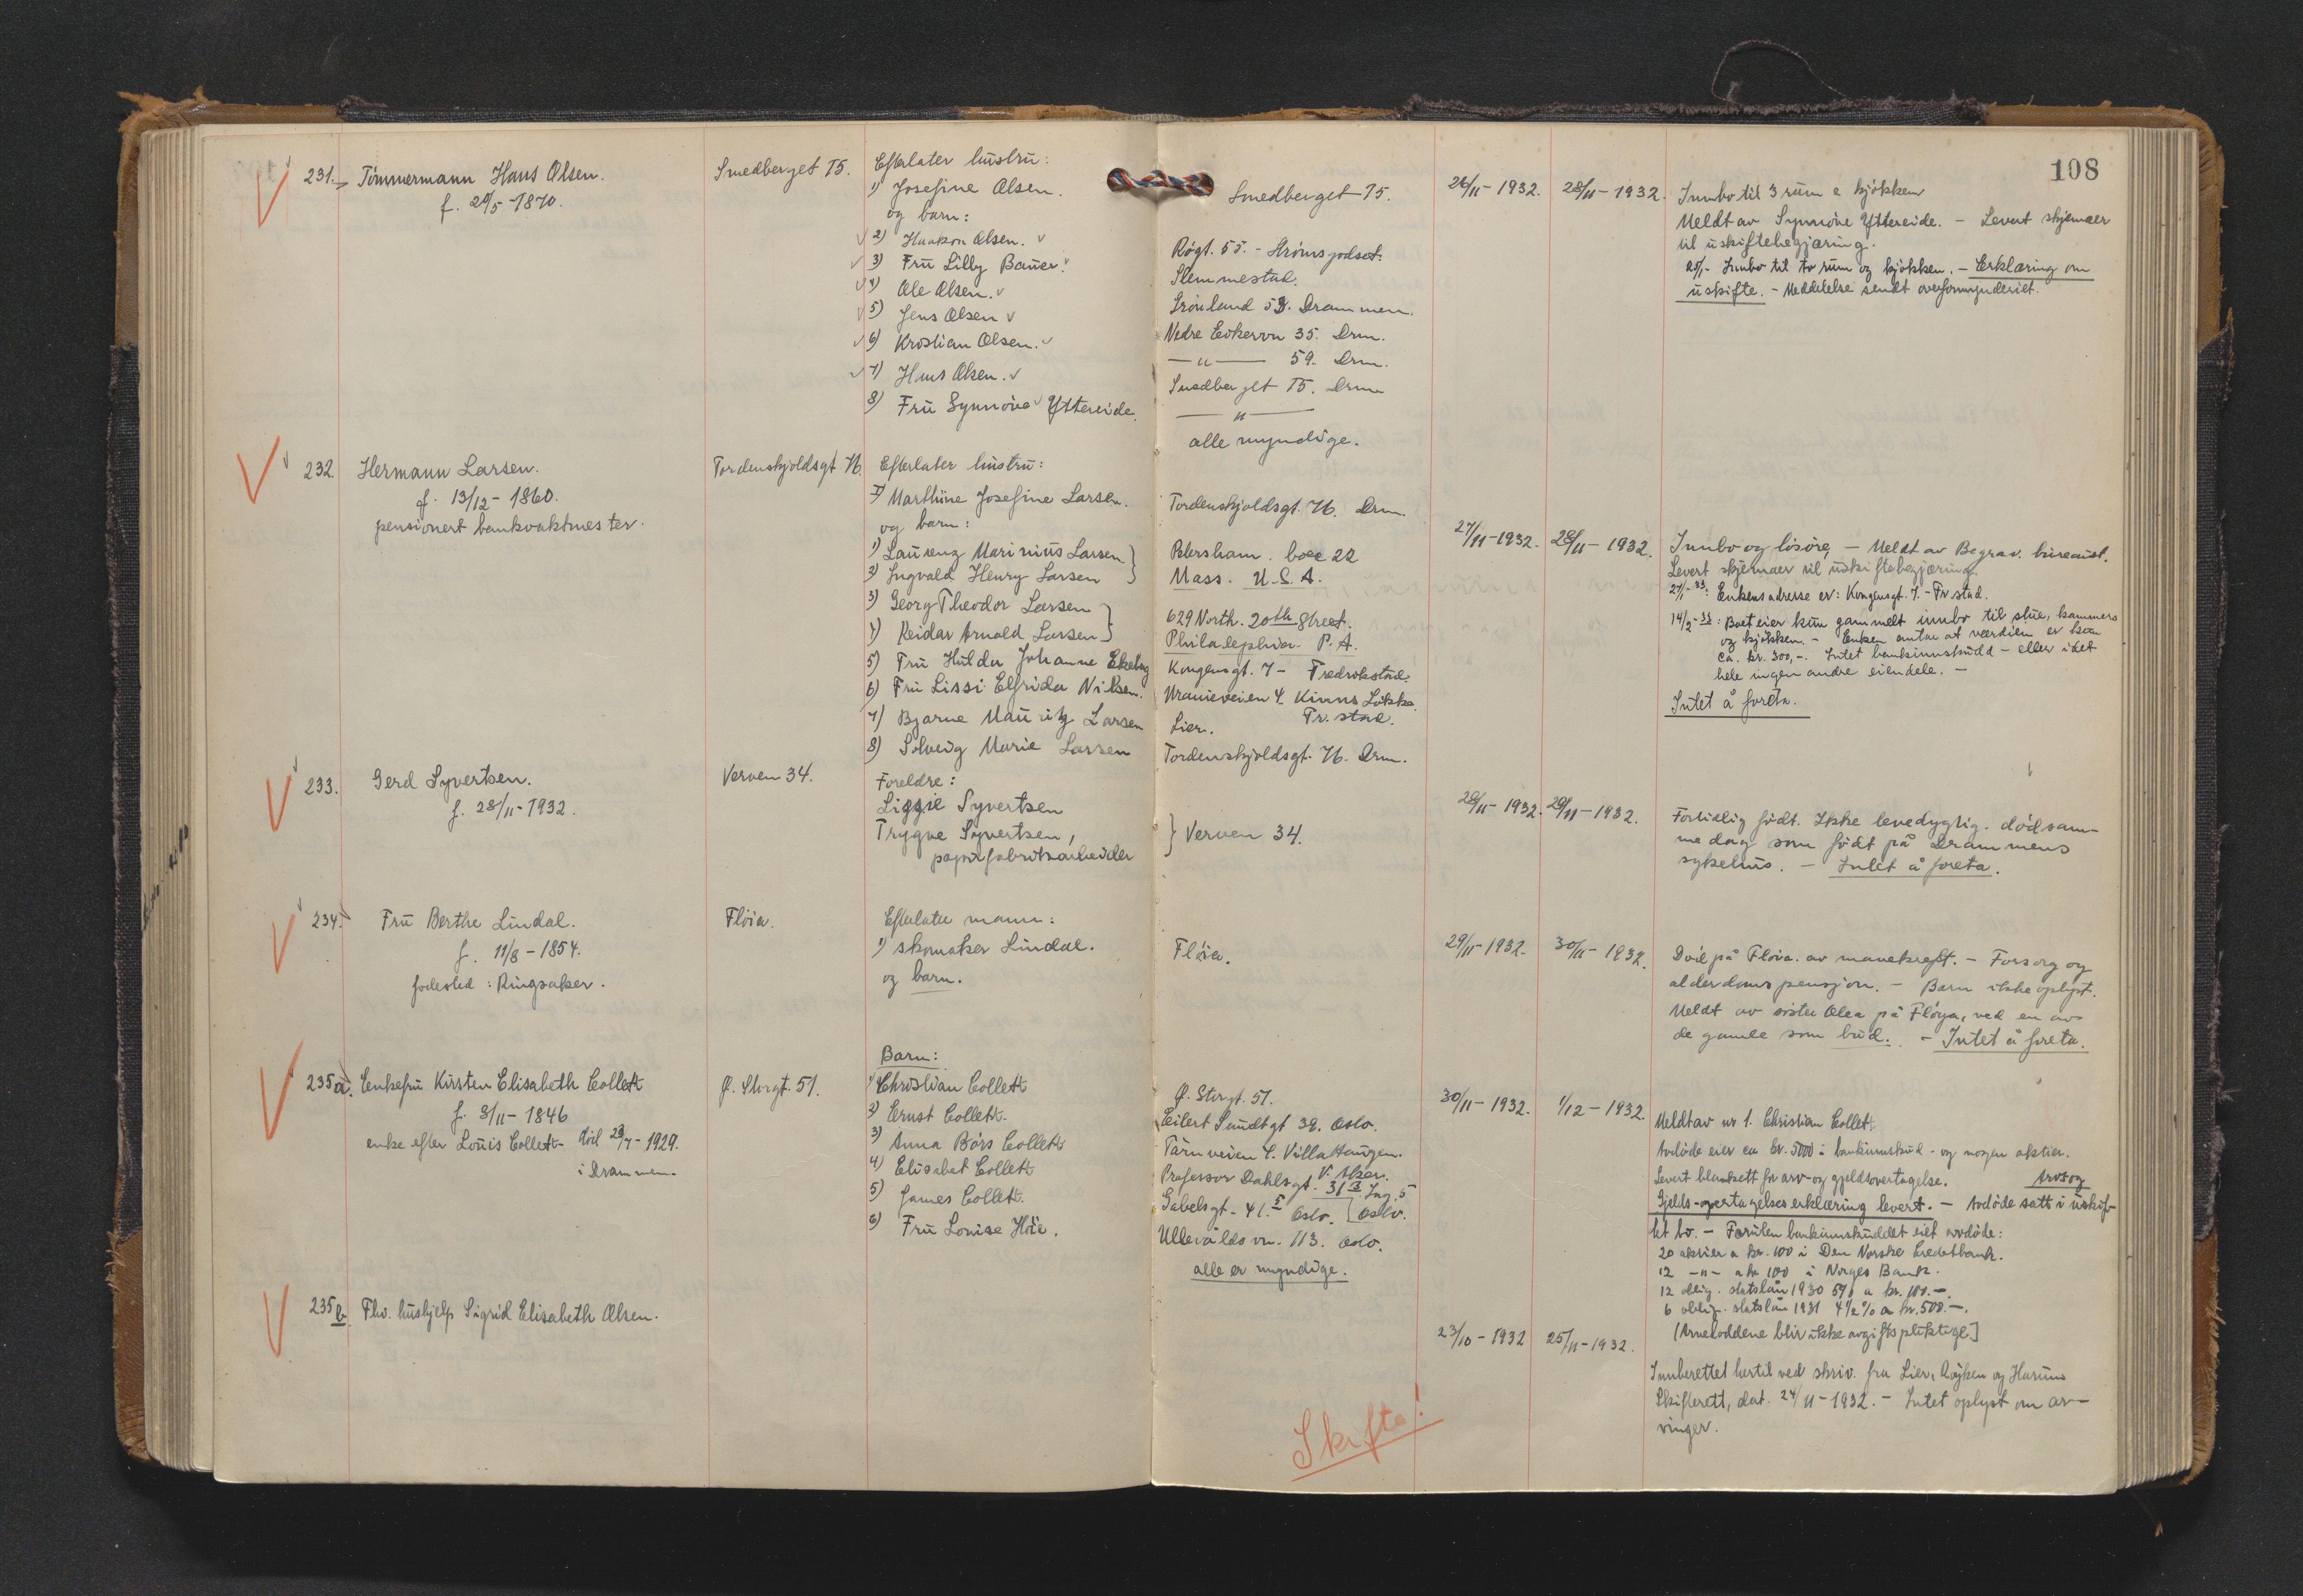 108
231. Tömmermann Hans Olsen.
f. 20/5-1870.
Smedberget 75.
Efterlater hustru:
1) Josefine Olsen.
og barn:
2) Haakon Olsen.
3) Fru Lilly Bauer.
4) Ole Olsen.
5) Jens Olsen
6) Kristian Olsen.
7) Hans Olsen.
8) Fru Synnöve Yttereide.
Smedberget 75.
Rögt. 55. - Strömsgodset.
Slemmestad.
Grönland 53. Drammen.
Nedre Eikervn 35. Drm.
— " — 59. Drm.
Smedberget 75. Drm
— " —
alle myndige.
26/11-1932.
28/11-1932.
Innbo til 3 rum & kjökken
Meldt av Synnöve Yttereide. - Levert skjemaer
til uskiftebegjæring.
Innbo til to rum og kjökken. - Erklæring om
uskifte. - Meddelelse sendt overformynderiet.
232. Hermann Larsen.
f. 13/12-1860.
pensionert bankvaktmester.
Tordenskjoldsgt 76.
Efterlater hustru:
Marthine Josefine Larsen.
og barn:
1) Laurenz Marinius Larsen
2) Ingvald Henry Larsen
3) Georg Theodor Larsen
4) Reidar Arnold Larsen
5) Fru Hulda Johanne Ekeberg
6) Fru Lissi Elfrida Nilsen.
7) Bjarne Mauritz Larsen
8) Solveig Marie Larsen
Tordenskjoldsgt. 76. Drm.
Petersham. boxe 22
Mass. U.S.A.
629 North. 20th Street.
Philadelphia P.A.
Kongensgt. 7 - Fredrikstad.
Uranieveien 4. Kinns Lökke.
Fr. stad.
Lier.
Tordenskjoldsgt. 76. Drm.
27/11-1932.
28/11-1932.
Innbo og lösöre, - Meldt av Begrav. bureauet.
Levert skjemaer til uskiftebegjæring.
Enkens adresse er: Kongensgt. 7. - Fr.stad.
14/2-33: Boet eier kun gammelt innbo til stue, kammers
og kjökken. - Enken antar at værdien er kun
ca. kr. 300,-. Intet bankinnskudd - eller i det
hele ingen andre eiendele. -
Intet å foreta.
233. Gerd Syvertsen.
f. 28/11-1932.
Verven 34.
Foreldre:
Lizzie Syvertsen
Trygve Syvertsen,
papirfabrikarbeider
} Verven 34.
28/11-1932.
29/11-1932.
Fortidlig födt. Ikke levedygtig. död sam-
me dag som födt på Drammens
sykehus. - Intet å foreta.
234. Fru Berthe Lindal.
f. 11/8-1854.
fodested: Ringsaker.
Flöia.
Efterlater mann:
1) skomaker Lindal.
og barn.
Flöia.
29/11-1932.
30/11-1932.
Död på Flöia. av mavekreft. - Forsorg og
alderdomspensjon. - Barn ikke oplyst.
Meldt av söster Olea på Flöya, ved en av
de gamle som bud. - Intet å foreta.
235a. Enkefru Kirsten Elisabeth Collett
f. 3/11-1846
enke efter Louis Collett - död 23/7-1929.
i Drammen.
Ø. Storgt. 51.
Barn:
1) Christian Collett
2) Ernst Collett.
3) Anna Börs Collett
4) Elisabet Collett
5) James Collett.
6) Fru Louise Höe.
Ø. Storgt. 51.
Eilert Sundtgt 39. Oslo.
Tårnveien 4. Villa Haugen.
V. Aker.
Professor Dahlsgt. 31 III Ing. 5
Oslo.
Gabelsgt. 41. 5 Oslo.
Ullevåldsvn. 113. Oslo.
alle er myndige.
30/11-1932.
1/12-1932.
Meldt av nr 1. Christian Collett.
Avdöde eier ca kr. 5000 i bankinnskud - og nogen aktier.
Levert blankett for arv- og gjeldsovertagelse. Arvs og
Gjelds-overtagelseserklæring levert. - Avdöde satt i uskif-
tet bo. - Foruten bankinnskuddet eiet avdöde:
20 aktier a kr. 100 i Den Norske Creditbank.
12 -"- a kr 100 i Norges Bank.
12 oblig. statslån 1930 5% a kr. 100.-.
6 oblig. statslån 1931 4½% a kr. 500.-.
[Arveloddene blir ikke avgiftspliktige]
235b Fhv. hushjelp Sigrid Elisabeth Olsen.
23/10-1932
25/11-1932.
Innberettet hertil ved skriv. fra Lier, Röyken og Hurum
Skifterett, dat. 24/11-1932. - Intet oplyst om ar-
vinger.
Skifte!